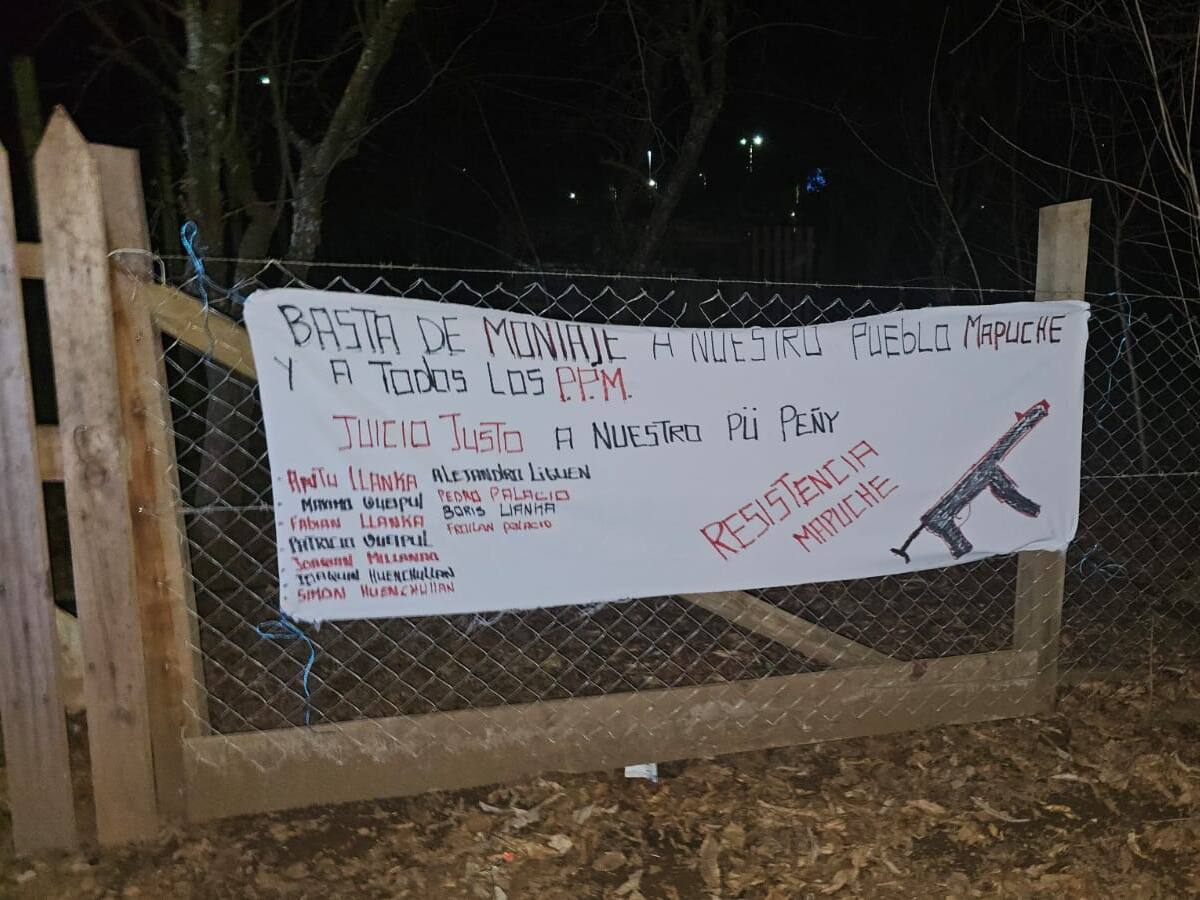 BASTA DE MONTAJE A NUESTRO PUEBLO MAPUCHE
Y A TODOS LOS P.P.M.
JUICIO JUSTO A NUESTRO PÜ PEÑY
LLANKA ALEJANDRO LIGUEN
- MAXIMO QUEIPUL PEDRO PALACIO
- FABIAN LLANKA BORIS LLANKA
- PATRICIO QUEIPUL FROILAN PALACIO
- JOAQUIN MILLANAO
- JOAQUIN HUENCHULLAN
- SIMON HUENCHULLAN
RESISTENCIA
MAPUCHE